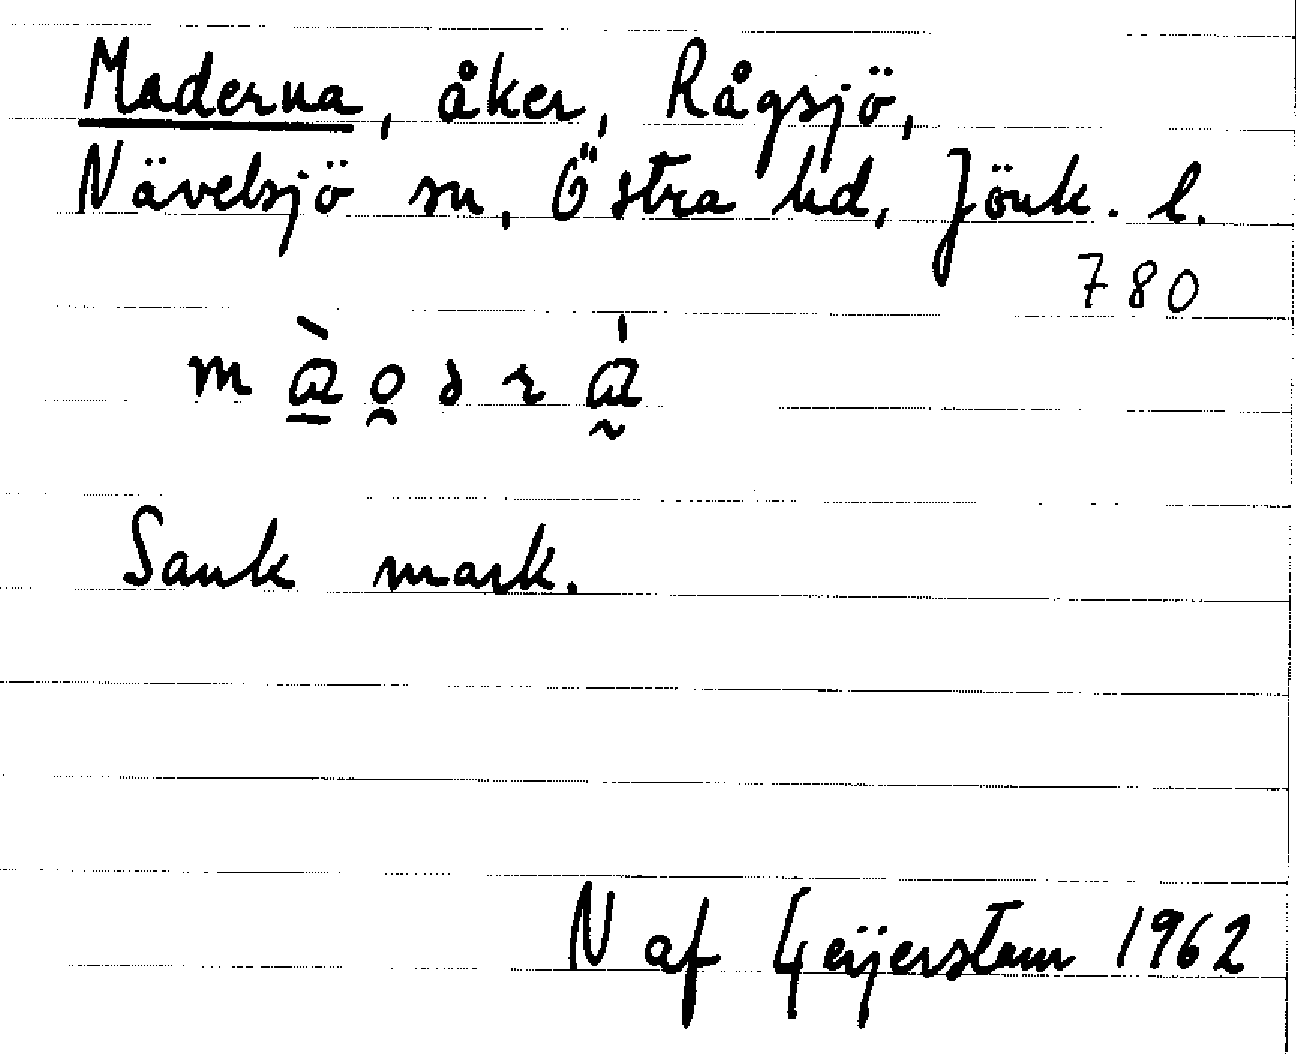 Maderna, åker, Rågsjö,
Nävelsjö sn, Östra hd, Jönk. l.
780
Sank mark.
N af Geijerstam 1962